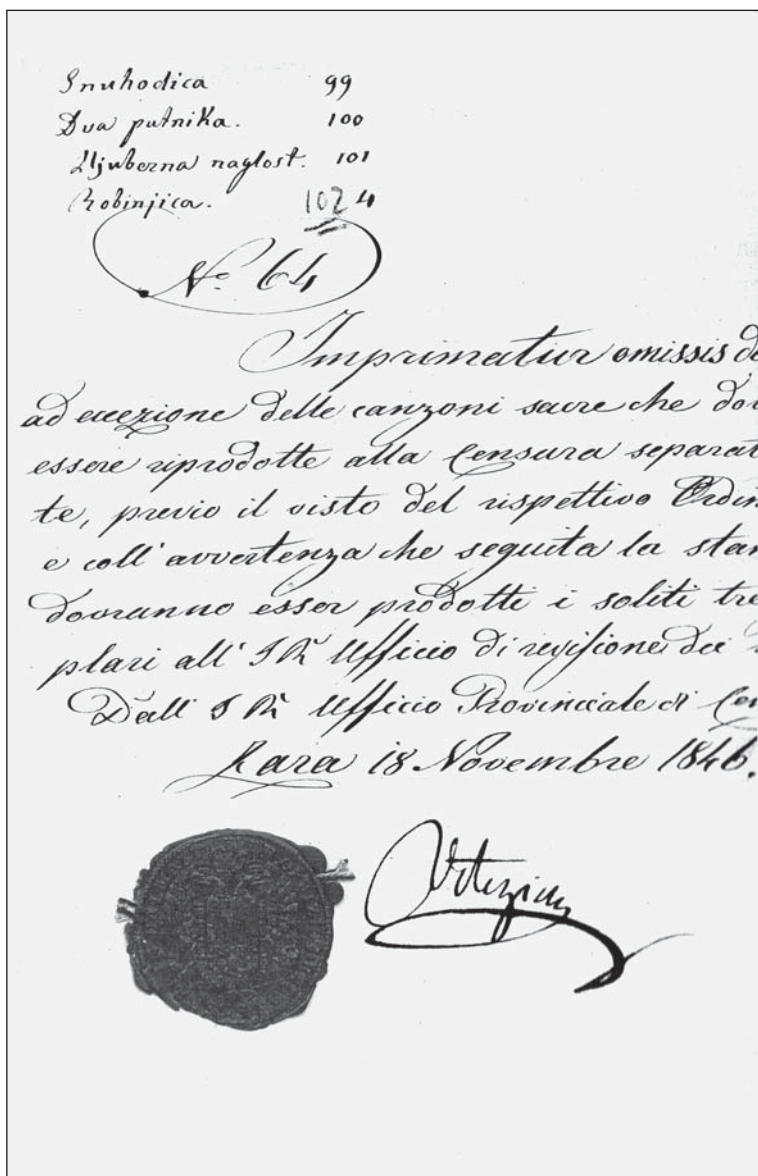 Snuhodica 99
Dva putnika. 100
Ljuberna naglost. 101
Robinjica. 102 4
No. 64
Imprimatur omissis de
ad eccezione delle canzoni sacre che dov
essere riprodotte alla Censura separat
te, previo il visto del rispettivo Ordin
e coll' avvertenza che seguita la stam
dovranno esser prodotti i soliti tre
plari all' I R Ufficio di revisione dei
Dall' I R Ufficio Provinciale di Cen
Zara 18 Novembre 1846.